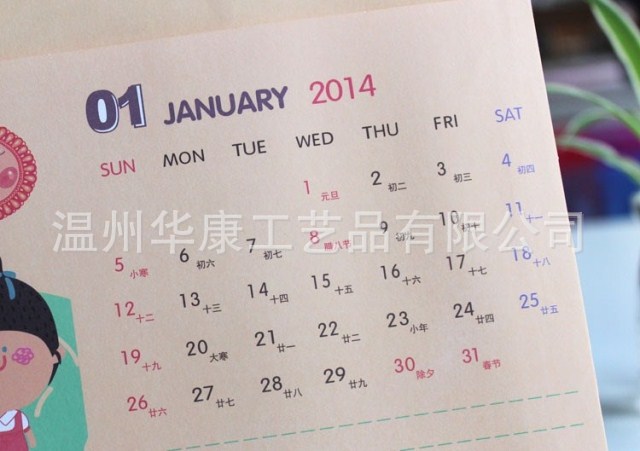 01 JANUARY 2014
SUN MON TUE WED THU FRI SAT
1 元旦 2 初二 3 初三 4 初四
5 小寒 6 初六 7 初七 8 腊八节 9 初九 10 初十 11 十一
12 十二 13 十三 14 十四 15 十五 16 十六 17 十七 18 十八
19 十九 20 大寒 21 廿一 22 廿二 23 小年 24 廿四 25 廿五
26 廿六 27 廿七 28 廿八 29 廿九 30 除夕 31 春节
温州华康工艺品有限公司